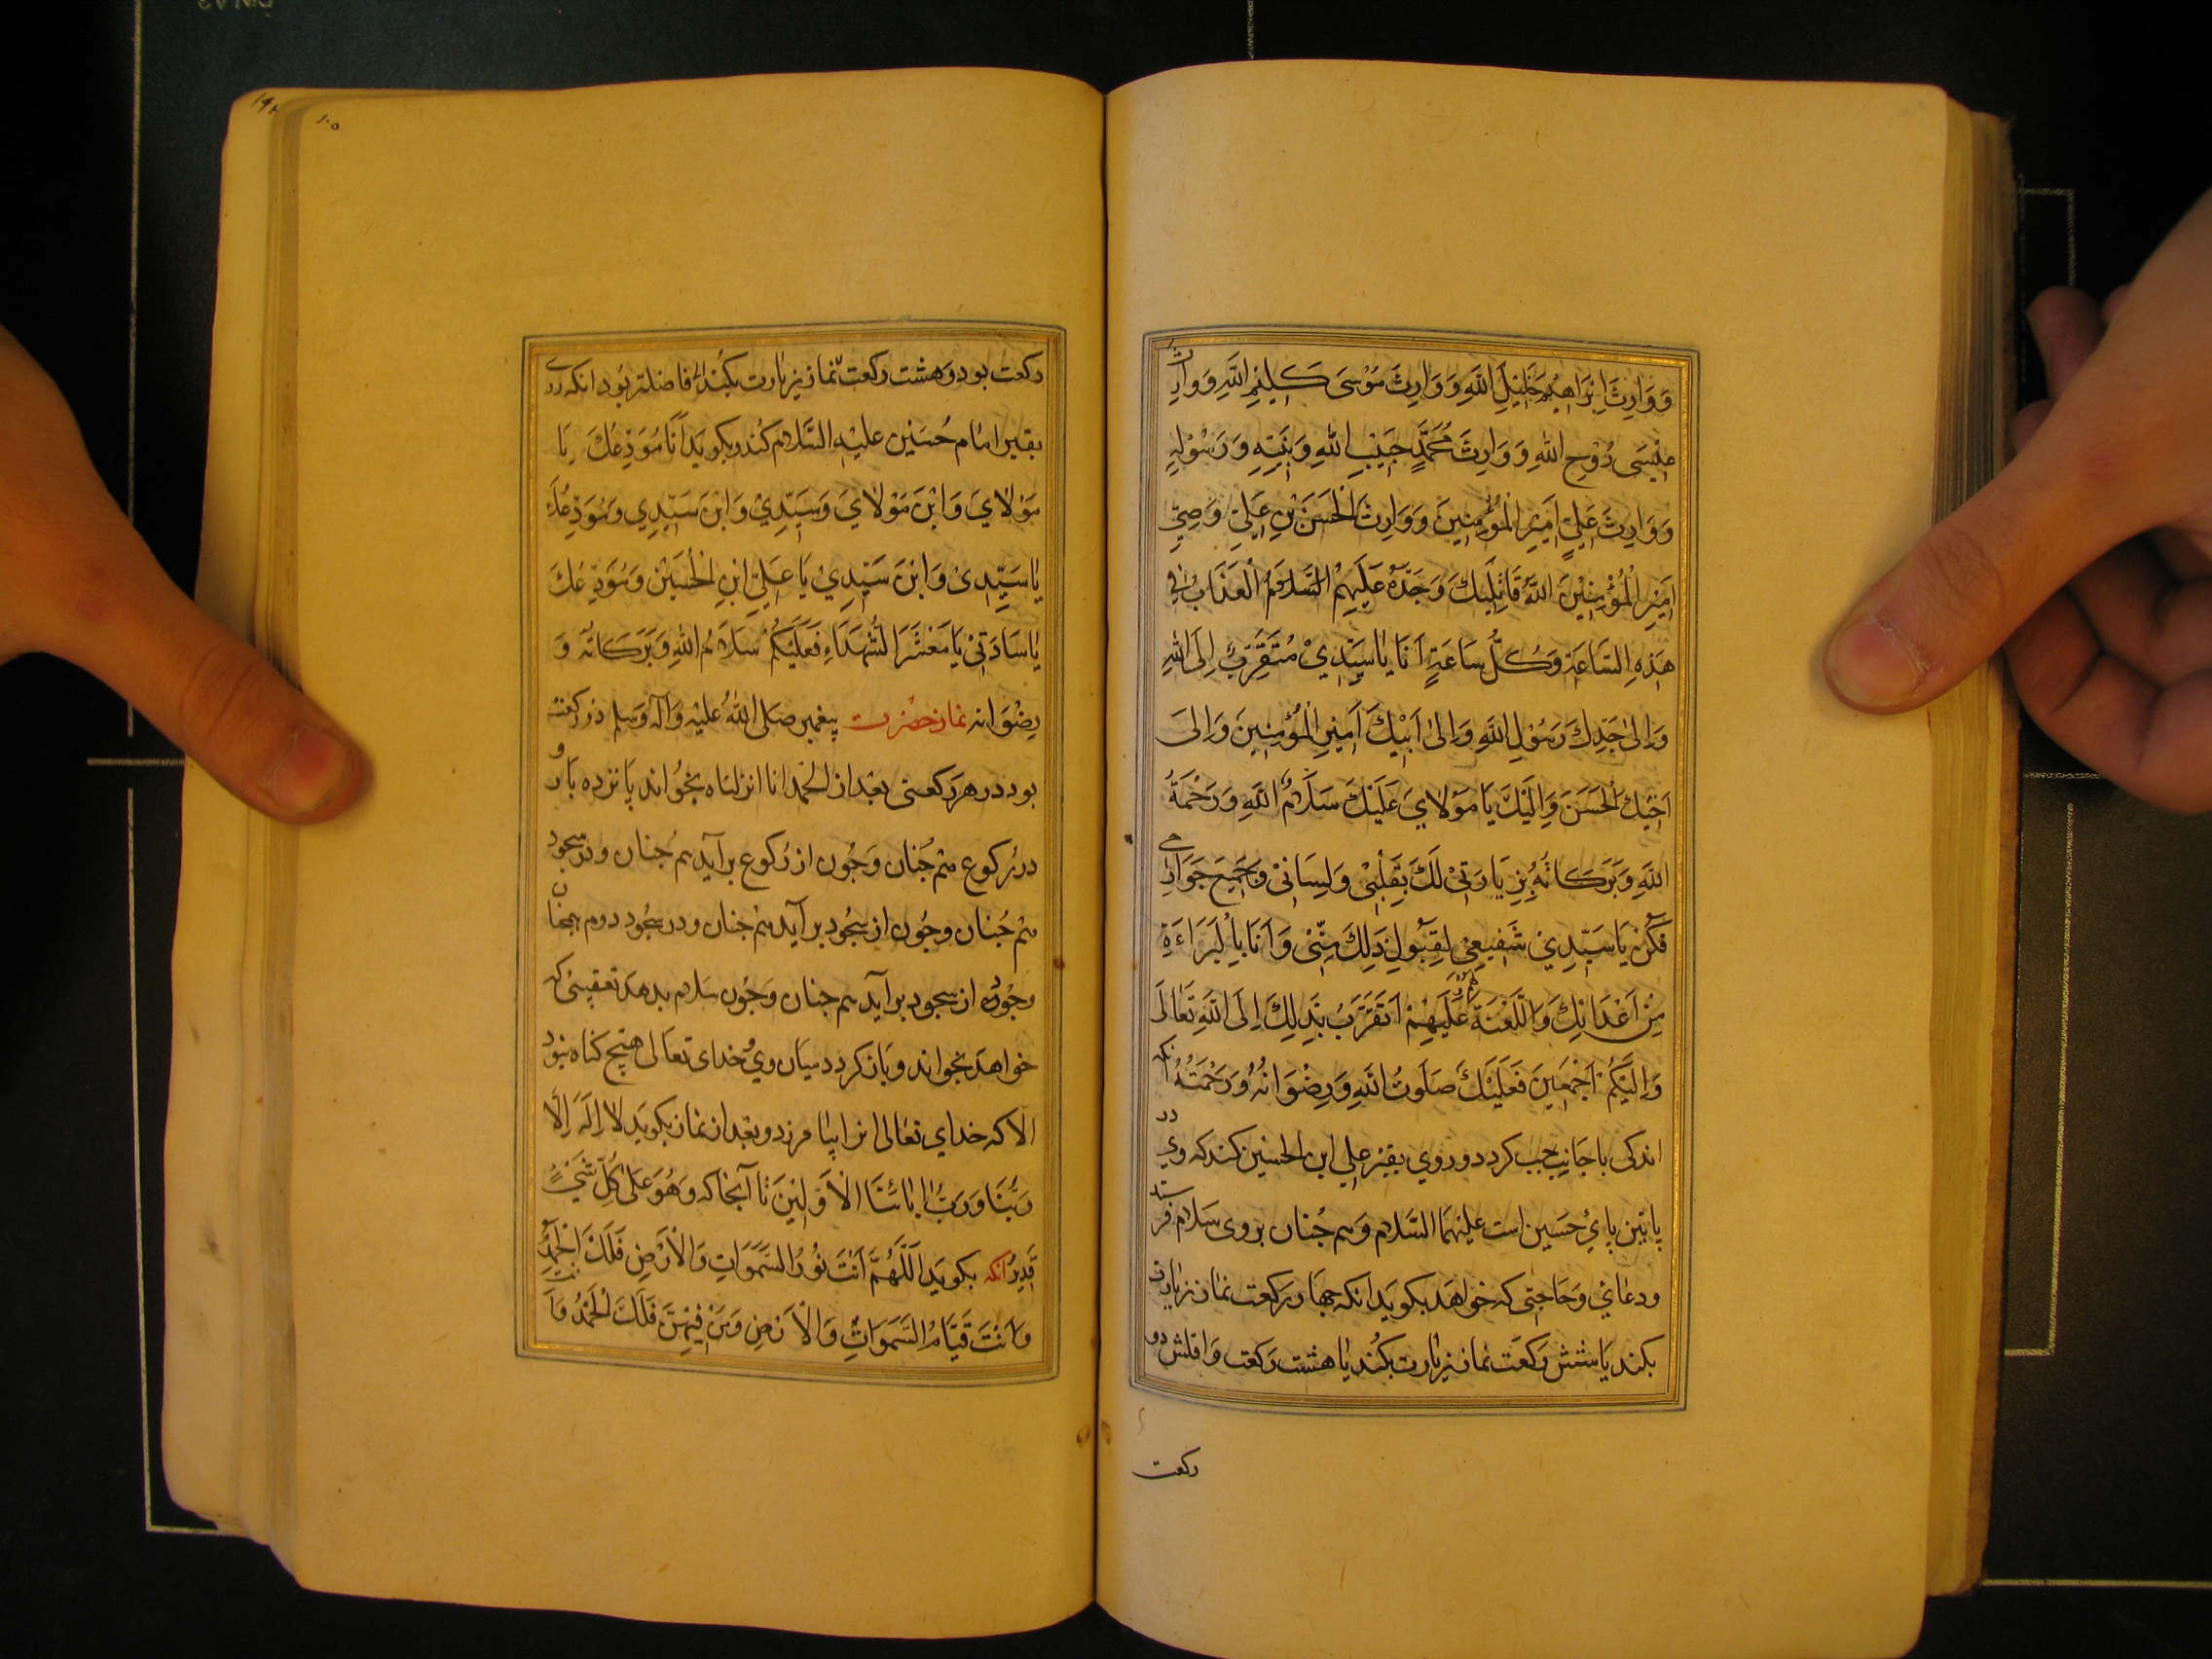 وَوَارِثَ اِبْرَاهِيْمَ خَلِيْلِ اللهِ وَوَارِثَ مُوْسَى كَلِيْمِ اللهِ وَوَارِثَ
عِيْسَى رُوْحِ اللهِ وَوَارِثَ مُحَمَّدٍ حَبِيْبِ اللهِ وَنَبِيِّهِ وَرَسُوْلِهِ
وَوَارِثَ عَلِيٍّ اَمِيْرِ الْمُؤْمِنِيْنَ وَوَارِثَ الْحَسَنِ بْنِ عَلِيٍّ وَصِيِّ
اَمِيْرِ الْمُؤْمِنِيْنَ اللهُ قَاتِلِيْكَ وَجَدَّدَ عَلَيْهِمُ الْعَذَابَ فِي
هَذِهِ السَّاعَةِ وَكُلِّ سَاعَةٍ اَنَا يَا سَيِّدِيْ مُتَقَرِّبٌ اِلَى اللهِ
وَاِلىٰ جَدِّكَ رَسُوْلِ اللهِ وَاِلىٰ اَبِيْكَ اَمِيْرِ الْمُؤْمِنِيْنَ وَاِلىَ
اَخِيْكَ الْحَسَنَ وَاِلَيْكَ يَا مَوْلَايَ عَلَيْكَ سَلَامُ اللهِ وَرَحْمَةُ
اللهِ وَبَرَكَاتُهُ بِزِيَارَتِيْ لَكَ بِقَلْبِيْ وَلِسَانِيْ وَجَمِيْعِ جَوَارِحِي
فَكُنْ يَا سَيِّدِيْ شَفِيعِيْ لِقَبُوْلِ ذَلِكَ مِنِّيْ وَاَنَا بِالْبَرَاءَةِ
مِنْ اَعْدَائِكَ وَاللَّعْنَةِ عَلَيْهِمْ اَتَقَرَّبُ بِذَلِكَ اِلَى اللهِ تَعَالَى
وَاِلَيْكُمْ اَجْمَعِيْنَ فَعَلَيْكَ صَلَوتُ اللهِ وَرِضْوَانُهُ وَرَحْمَتُهُ انكه
اندكى با جانب چپ كردد وروي بقبر علي ابن الحسين كند كه وي در
پائين پاي حسين است عليهما السلام وهم چنان بروى سلام فرستد
ودعاي وحاجتى كه خواهد بكويد انكه چهار ركعت نماز زيارت
بكند يا شش ركعت نماز زيارت بكند يا هشت ركعت واقلش دو
ركعت
ركعت بود وهشت ركعت نماز زيارت بكند فاضلتر بود انكه روي
بقبر امام حسين عليه السلام كند وبكويد اَنَا مُوَدِّعُكَ يَا
مَوْلَايَ وَابْنَ مَوْلَايَ وَسَيِّدِيْ وَابْنَ سَيِّدِيْ وَمُوَدِّعُكَ
يَا سَيِّدِيْ وَابْنَ سَيِّدِيْ يَا عَلِيِّ ابْنِ الْحُسَيْنِ وَمُوَدِّعُكَ
يَا سَادَتِيْ يَا مَعْشَرَ الشُّهَدَاءِ فَعَلَيْكُمْ سَلَامُ اللهِ وَبَرَكَاتُهُ وَ
رِضْوَانه نماز حضرت پيغمبر صلى الله عليه وآله وسلم دو ركعت
بود در هر ركعتى بعد از الحمد انا انزلناه بخواند پانزده بار و
در ركوع هم چنان وچون از ركوع برآيد هم چنان ودر سجود
هم چنان وچون از سجود برآيد هم چنان ودر سجود دوم همچنان
وچون از سجود برآيد هم چنان وچون سلام بدهد تعقيبى كه
خواهد بخواند وباز كردد ميان وي وخداى تعالى هيچ كناه نبود
الا كه خداي تعالى بيامرزد وبعد از نماز بكويد لَا اِلَهَ اِلَّا
رَبُّنَا وَرَبُّ اٰبَائِنَا الْاَوَّلِيْنَ تا آنجا كه وَهُوَ عَلىٰ كُلِّ شَيْءٍ
قَدِيْرٌ انكه بكويد اَللَّهُمَّ اَنْتَ نُوْرُ السَّمَوَاتِ وَالْاَرْضِ فَلَكَ الْحَمْدُ
وَاَنْتَ قَيَّامُ السَّمَوَاتِ وَالْاَرْضِ وَمَنْ فِيْهِنَّ فَلَكَ الْحَمْدُ وَاَنْتَ